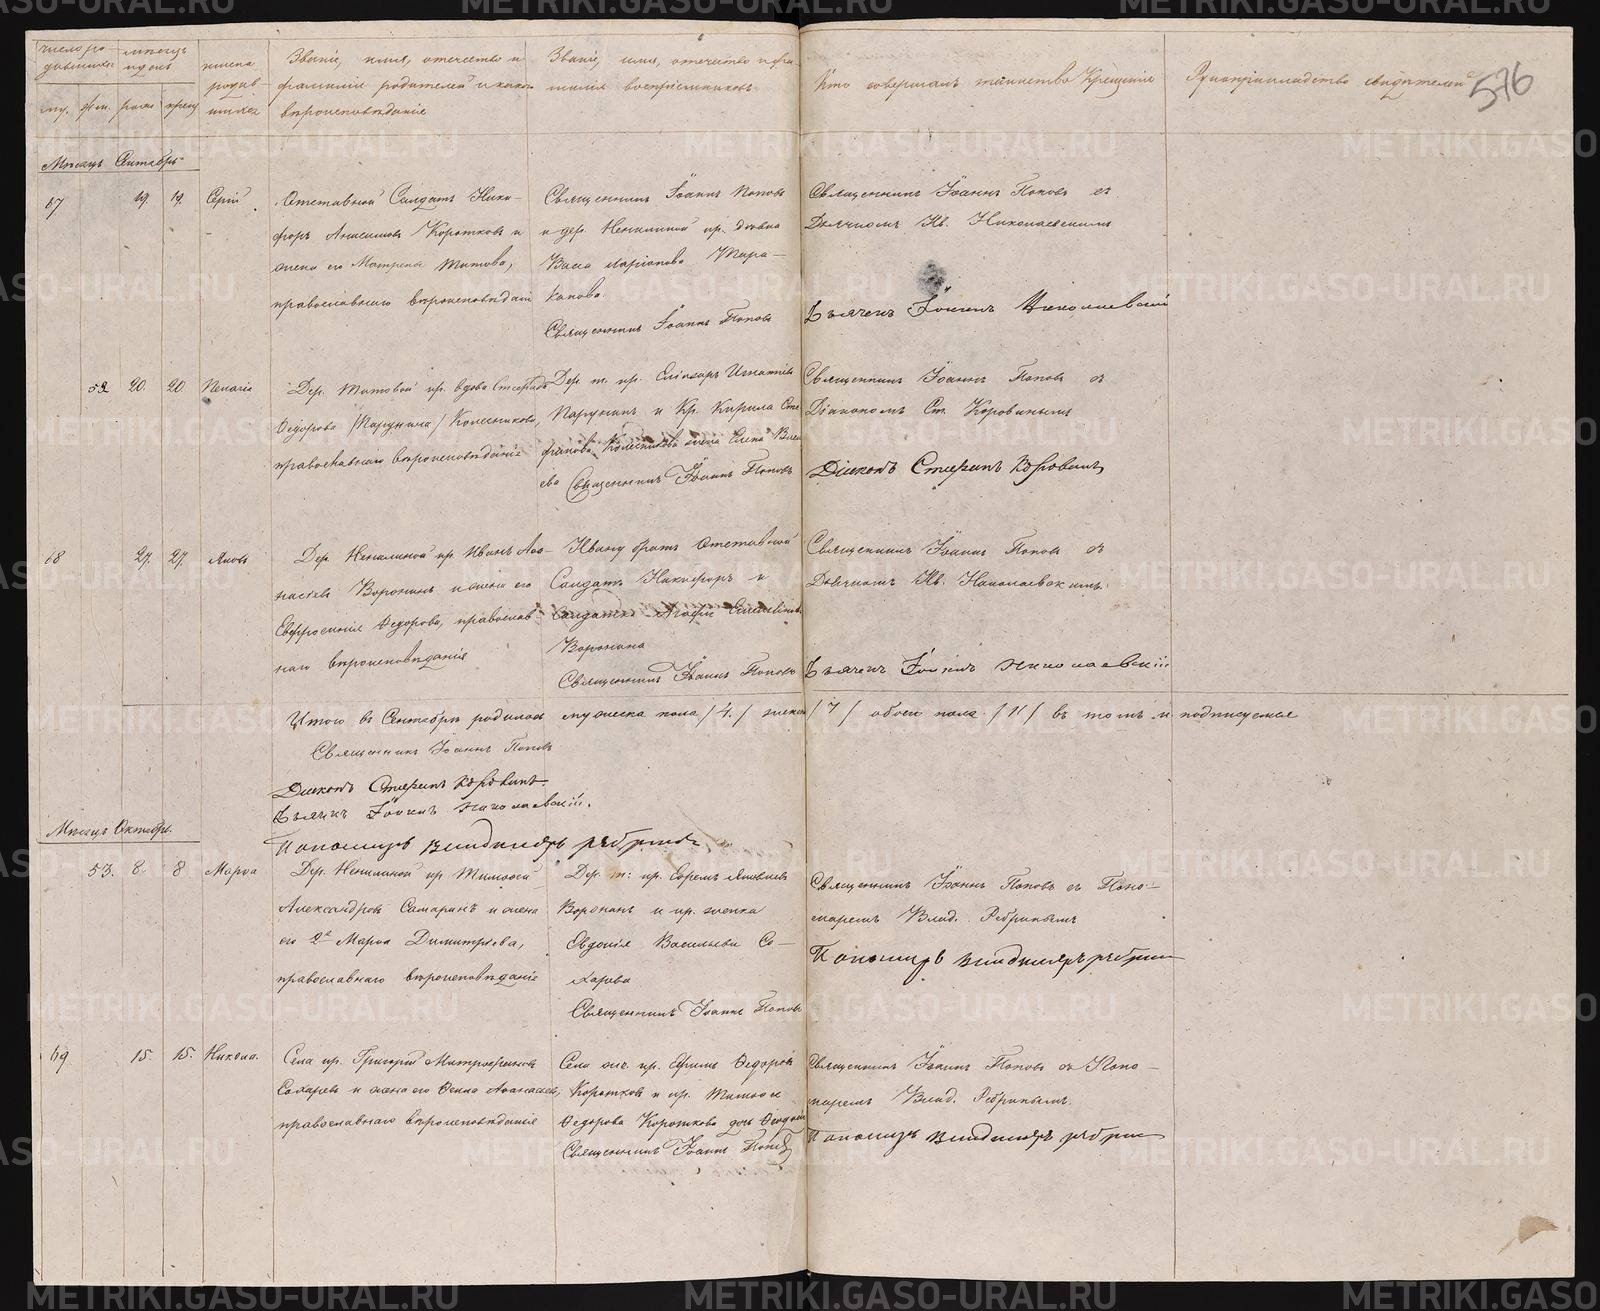 число ро-
дившихся
мѣсяцъ
и день
имена
родив-
шихся
Званіе, имя, отчество и
фамилія родителей и какого
вѣроисповѣданія
Званіе, имя, отчество и фа-
милія воспріемниковъ
Кто совершалъ таинство Крещенія
Рукоприкладство свидѣтелей
576
му. жен. рожд. крещ.
Мѣсяцъ Сентябрь
67 19. 19. Сергій
Отставный Солдатъ Ники-
форъ Анисимовъ Коротковъ и
жена его Матрена Титова,
православнаго вѣроисповѣданія
Священникъ Іоаннъ Поповъ
и дер. Ненилиной кр. вдова
Васса Ларіонова Тара-
канова.
Священникъ Іоаннъ Поповъ
Священникъ Іоаннъ Поповъ съ
Дьячкомъ Ив. Николаевскимъ
Дьячекъ Іоаннъ Николаевскій
52 20. 20 Пелагія
Дер. Титовой кр. вдова Стефанида
Ѳедорова /Парунина/ Колесникова,
православнаго вѣроисповѣданія
Дер. т. кр. Еліазаръ Игнатіевъ
Парунинъ и Кр. Кирила Сте
фанова Колесникова жена Елена Васи
ева Священникъ Іоаннъ Поповъ
Священникъ Іоаннъ Поповъ съ
Діакономъ Ст. Коровинымъ
Діаконъ Стефанъ Коровинъ
68 27. 27. Яковъ
Дер. Ненилиной кр. Иванъ Аѳа-
насіевъ Воронинъ и жена его
Евфросинія Ѳедорова, православ-
наго вѣроисповѣданія
Ивану братъ Отставной
Солдатъ Никифоръ и
Солдатка Агафія
Воронина
Священникъ Іоаннъ Поповъ
Священникъ Іоаннъ Поповъ съ
Дьячкомъ Ив. Николаевскимъ.
Дьячекъ Іоаннъ Николаевскій
Итого въ Сентябрѣ родилось мужеска пола /4./ женска /7/ обоего пола /11/ въ томъ и подписуемся
Священникъ Іоаннъ Поповъ
Діаконъ Стефанъ Коровинъ.
Дьячекъ Іоаннъ Николаевскій.
Пономарь Владиміръ Ребринъ
Мѣсяцъ Октябрь.
53. 8. 8 Марѳа
Дер. Ненилиной кр Тимоѳей
Александровъ Самаринъ и жена
его 2я Марѳа Димитріева,
православнаго вѣроисповѣданія
Дер. т: кр. Ефремъ Яковлевъ
Воронинъ и кр. женка
Евдокія Васильева Со-
харева
Священникъ Іоаннъ Поповъ
Священникъ Іоаннъ Поповъ съ Поно-
маремъ Влад. Ребринымъ
Пономарь Владиміръ Ребринъ
69 15. 15. Никола.
Села кр. Григорій Митрофановъ
Сохаревъ и жена его Ѳекла Аѳанасіева,
православнаго вѣроисповѣданія
Села кр. Ефимъ Ѳедоровъ
Коротковъ и кр. Тимоѳея
Ѳедорова Короткова дочь
Священникъ Іоаннъ Поповъ
Священникъ Іоаннъ Поповъ съ Поно-
маремъ Влад. Ребринымъ.
Пономарь Владиміръ Ребринъ
METRIKI.GASO-URAL.RU